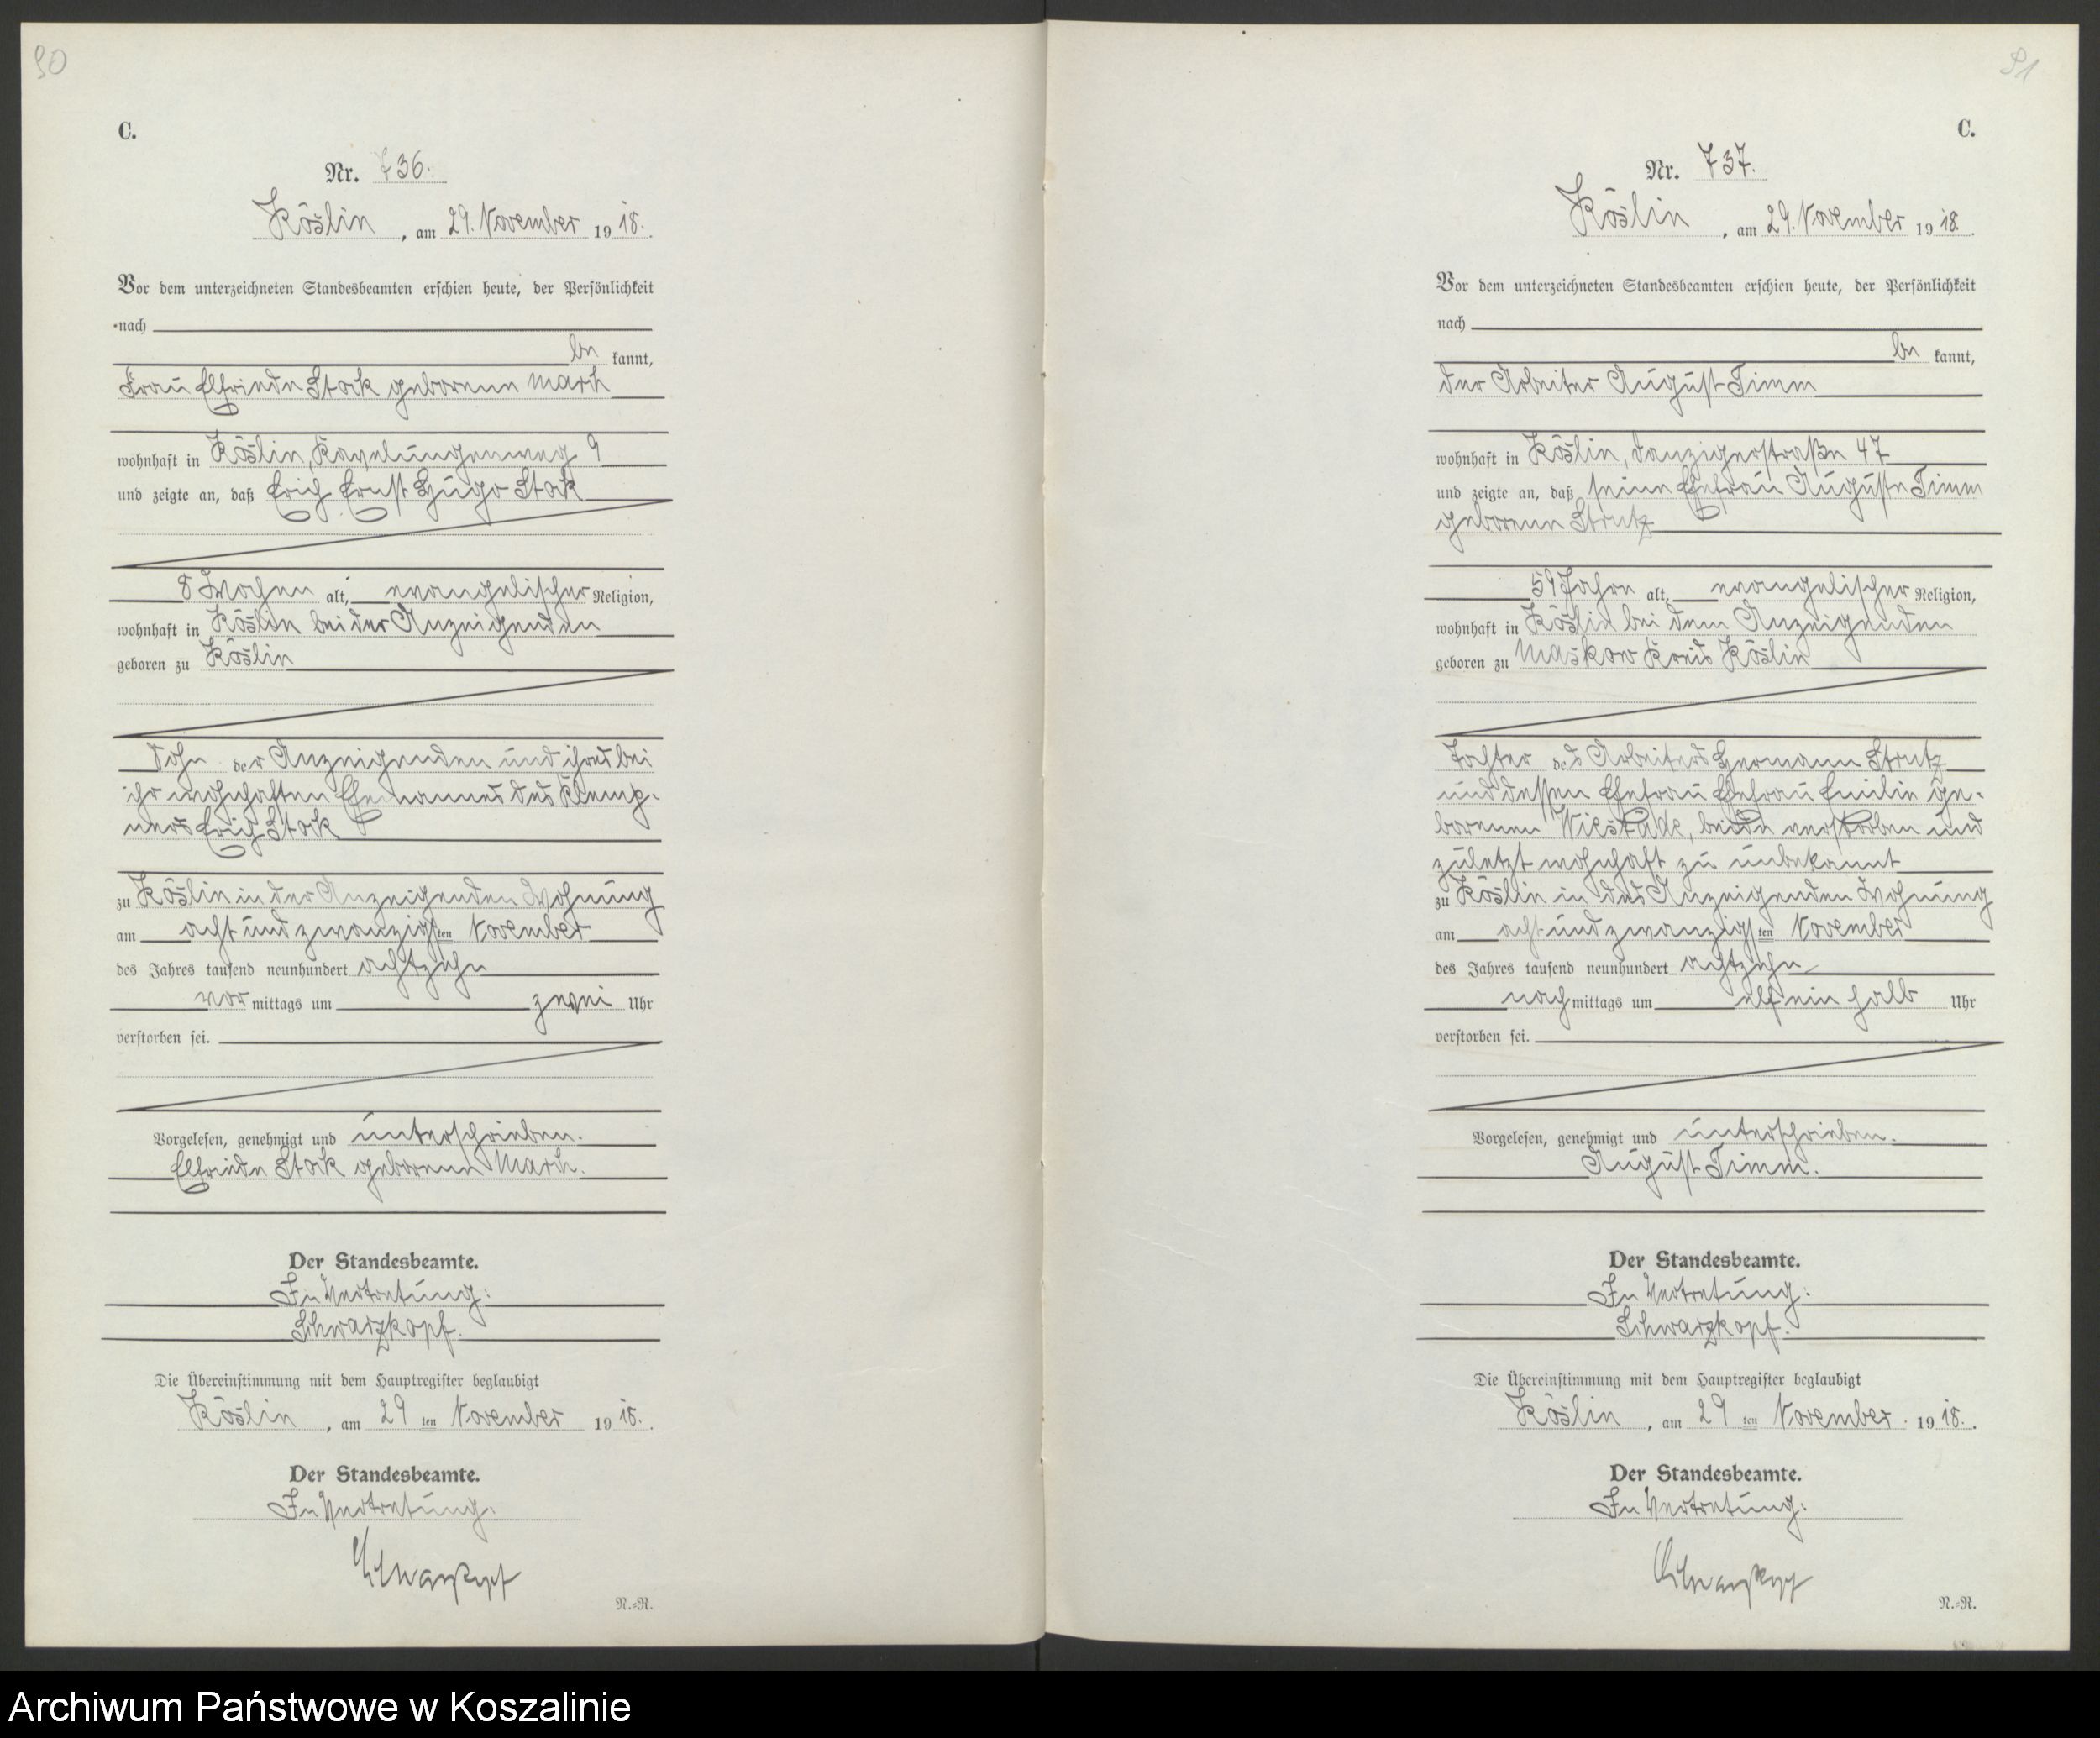 90
C.
Nr. 736.
Köslin, am 29. November 1918.
Vor dem unterzeichneten Standesbeamten erschien heute, der Persönlichkeit
nach
be kannt,
Frau Elfriede Stock geborene March
wohnhaft in Köslin, Kavelungenweg 9
und zeigte an, daß Erich Ernst Hugo Stock
8 Wochen alt, evangelischer Religion,
wohnhaft in Köslin bei der Anzeigenden
geboren zu Köslin
Sohn der Anzeigenden und ihres bei
ihr wohnhaften Ehemannes des Klemp-
ners Erich Stock
zu Köslin in der Anzeigenden Wohnung
am acht und zwanzigsten November
des Jahres tausend neunhundert achtzehn
vor mittags um zwei Uhr
verstorben sei.
Vorgelesen, genehmigt und unterschrieben.
Elfriede Stock geborene March.
Der Standesbeamte.
In Vertretung:
Schwarzkopf.
Die Übereinstimmung mit dem Hauptregister beglaubigt
Köslin, am 29 ten November 1918.
Der Standesbeamte.
In Vertretung:
Schwarzkopf
N.=R.
91
C.
Nr. 737.
Köslin, am 29. November 1918.
Vor dem unterzeichneten Standesbeamten erschien heute, der Persönlichkeit
nach
be kannt,
der Arbeiter August Timm
wohnhaft in Köslin, Danzigerstraße 47
und zeigte an, daß seine Ehefrau Auguste Timm
geborene Strutz
59 Jahre alt, evangelischer Religion,
wohnhaft in Köslin bei dem Anzeigenden
geboren zu Maskow Kreis Köslin
Tochter des Arbeiters Hermann Strutz
und dessen Ehefrau Ehefrau Emilie ge-
borenen Wiestück, beide verstorben und
zuletzt wohnhaft zu unbekannt
zu Köslin in des Anzeigenden Wohnung
am acht und zwanzigsten November
des Jahres tausend neunhundert achtzehn
nach mittags um elf ein halb Uhr
verstorben sei.
Vorgelesen, genehmigt und unterschrieben.
August Timm.
Der Standesbeamte.
In Vertretung:
Schwarzkopf.
Die Übereinstimmung mit dem Hauptregister beglaubigt
Köslin, am 29 ten November 1918.
Der Standesbeamte.
In Vertretung:
Schwarzkopf
N.=R.
Archiwum Państwowe w Koszalinie